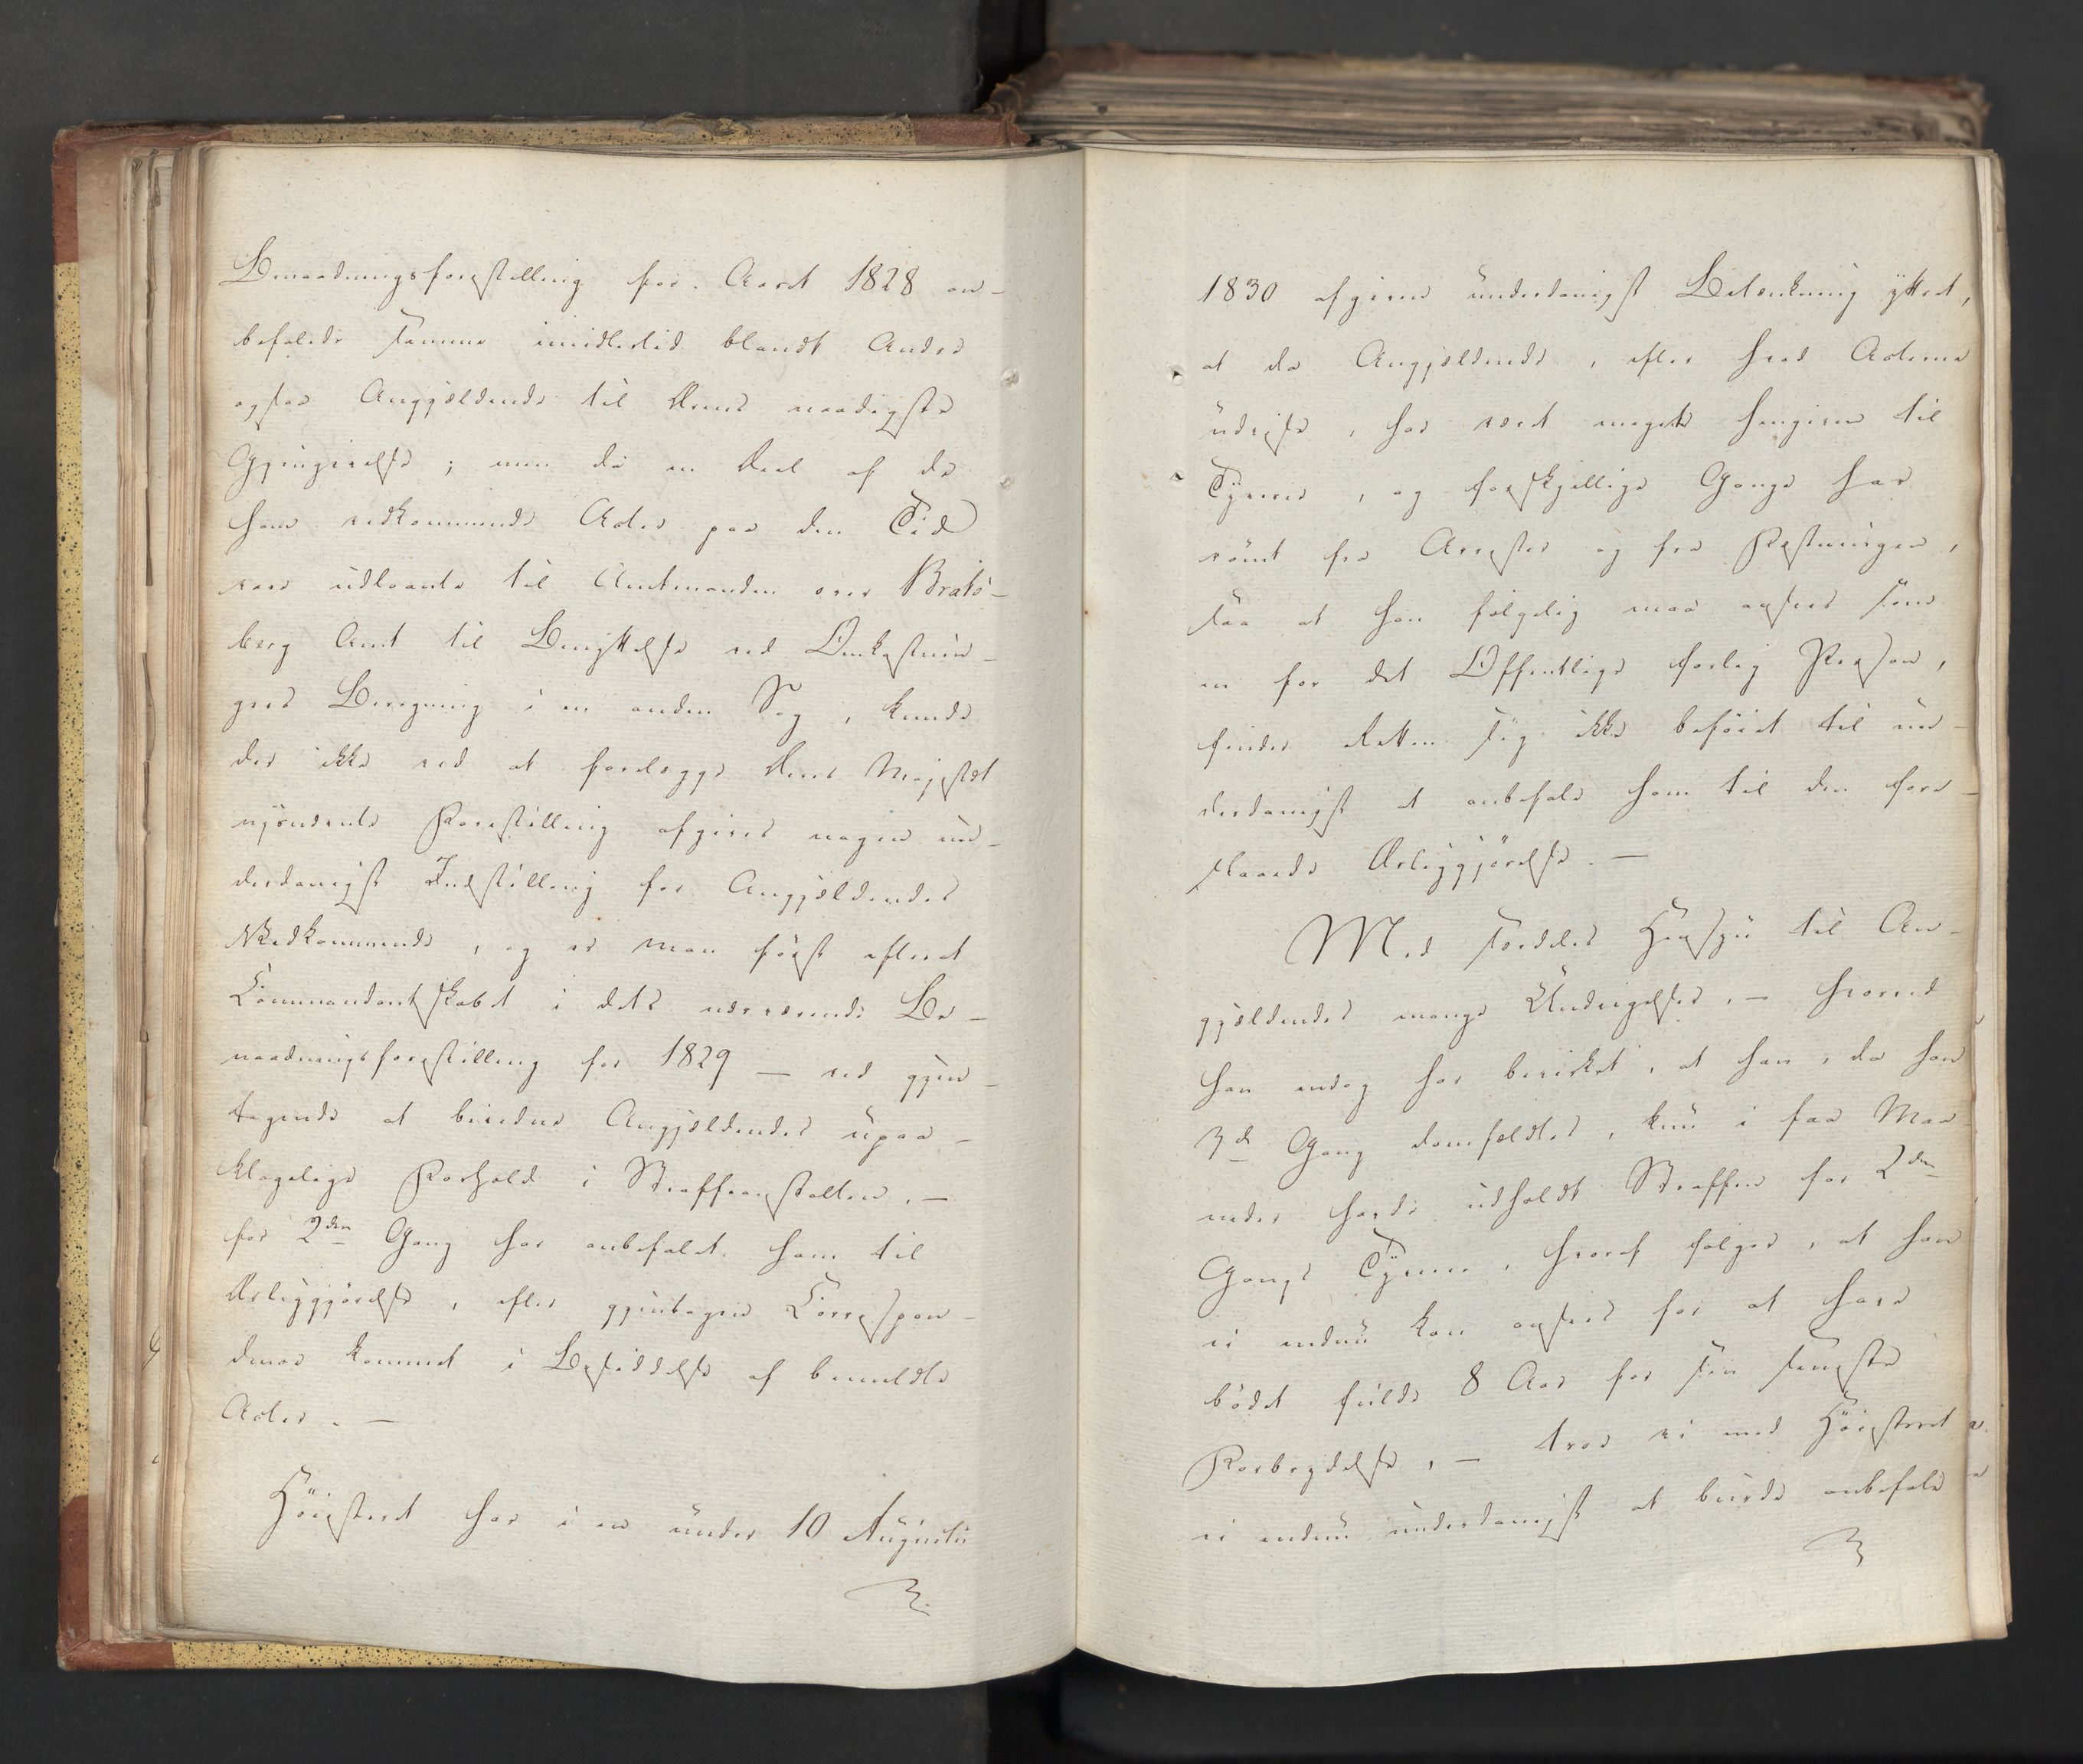 Benaadningsforestilling for Aaret 1828 an-
befalede samme imidlertid blandt Andre
ogsaa Angjældende til Deres naadigste
Gjengivelse; men da en Deel af de
ham vedkommende Acter paa den Tid
vare udlaante til Amtmanden over Brats-
berg Amt til Benyttelse ved Omkostnin-
gers Beregning i en anden Sag, kunde
der ikke ved at forelægge Deres Majestæt
nysnævnte Forestilling afgives nogen un-
derdanigst Indstilling for Angjældendes
Vedkommende, og er man først efterat
Commandantskabet i dets nærværende Be-
naadningsforestilling for 1829 — ved gjen-
tagende at bevidne Angjældendes upaa-
klagelige Forhold i Straffeanstalten, —
for 2den Gang har anbefalet ham til
Løsliggjørelse, efter gjentagen Correspon-
dence kommet i Besiddelse af bemeldte
Acter. —
Höiesteret har i en under 10 Augusti
1830 afgiven underdanigst Betænkning yttret,
at da Angjældende, efter hvad Acterne
udvise, har været meget hengiven til
Tyverie, og forskjellige Gange har
römt fra Arrester og fra Fæstningen,
saa at han fölgelig maa ansees som
en for det Offentlige farlig Person,
finder Retten sig ikke beföiet til un-
derdanigst at anbefale ham til den fore-
slaaede Løsliggjörelse. —
Med særdeles Hensyn til An-
gjældendes mange Undvigelser, — hvorved
han endog har bevirket, at han, da han
3die Gang domfældtes, kun i faa Maa-
neder havde udholdt Straffen for 2den
Gangs Tyverie, hvoraf fölger, at han
ei endnu kan ansees for at have
bödet fulde 8 Aar for sin seneste
Forbrydelse, — troe vi med Höiesteret
ei endnu underdanigst at burde anbefale